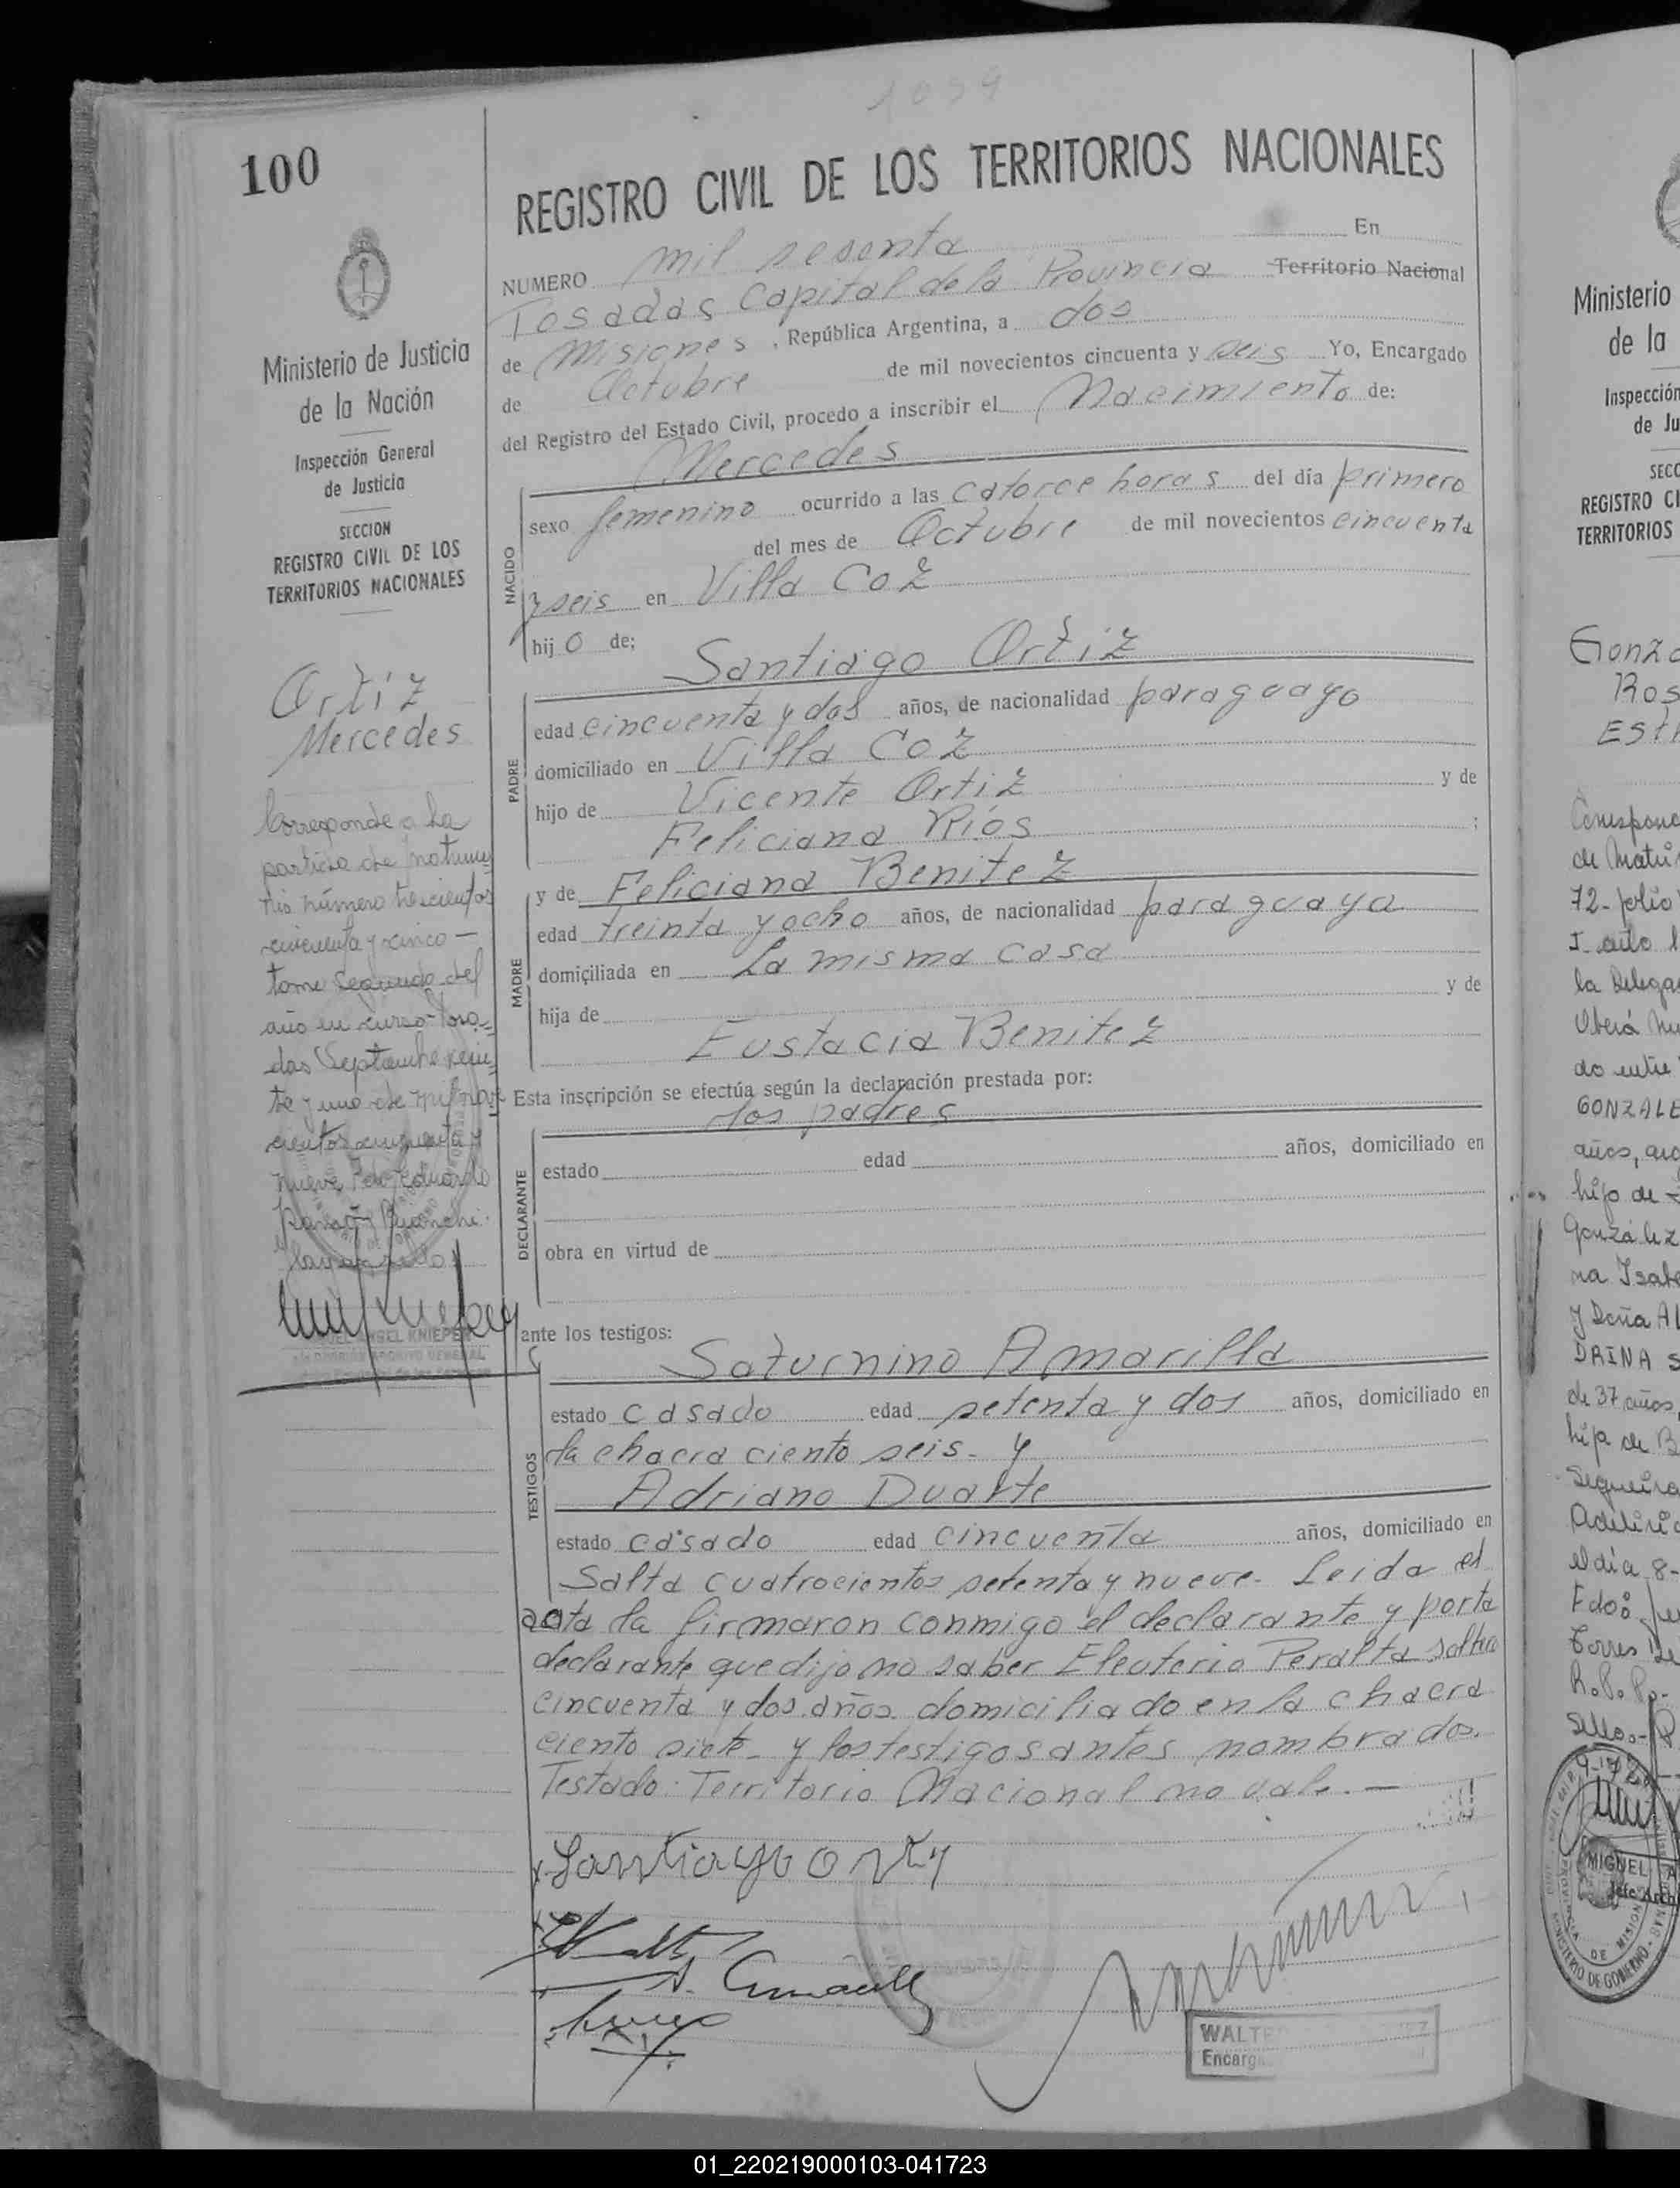 1059
100
REGISTRO CIVIL DE LOS TERRITORIOS NACIONALES
NUMERO mil sesenta En
Posadas Capital de la Provincia Territorio Nacional
de Misiones, República Argentina, a dos
de Octubre de mil novecientos cincuenta y seis Yo, Encargado
del Registro del Estado Civil, procedo a inscribir el Nacimiento de:
Mercedes
NACIDO
sexo femenino ocurrido a las catorce horas del día primero
del mes de Octubre de mil novecientos cincuenta
y seis en Villa Coz
hijo de;
Santiago Ortiz
PADRE
edad cincuenta y dos años, de nacionalidad paraguayo
domiciliado en Villa Coz
hijo de Vicente Ortiz y de
Feliciana Ríos ;
MADRE
y de Feliciana Benitez
edad treinta y ocho años, de nacionalidad paraguaya
domiciliada en La misma casa
hija de y de
Eustacia Benitez
Esta inscripción se efectúa según la declaración prestada por:
los padres
DECLARANTE
estado edad años, domiciliado en
obra en virtud de
ante los testigos:
Saturnino Amarilla
TESTIGOS
estado casado edad setenta y dos años, domiciliado en
la chacra ciento seis- y
Adriano Duarte
estado casado edad cincuenta años, domiciliado en
Salta cuatrocientos setenta y nueve- Leida el
acta la firmaron conmigo el declarante y por la
declarante que dijo no saber Eleuterio Peralta soltero
cincuenta y dos años domiciliado en la chacra
ciento siete- y los testigos antes nombrados.
Testado: Territorio Nacional no vale.—
Santiago Orty
WALTE
Encarg
Ministerio de Justicia
de la Nación
Inspección General
de Justicia
SECCION
REGISTRO CIVIL DE LOS
TERRITORIOS NACIONALES
Ortiz
Mercedes
Corresponde a la
partida de matrimo
nio número trescientos
cincuenta y cinco—
tomo Segundo del
año en curso- Posa=
das Septiembre vein
te y uno de mil nove
cientos cincuenta y
nueve Fdo Eduardo
Ramón Bianchi
MIGUEL ANGEL KNIEPER
Ministerio
de la
Inspección
de Ju
SECC
REGISTRO CI
TERRITORIOS
Gonza
Ros
Est
Correspond
de Matri
72- folio
I- año 1
la Delega
Oberá
do entre
GONZALE
años, arg
hijo de
González
na Isabe
y Doña Al
DRINA S
de 37 años,
hija de B
Sequeira
el día 8-
Fdo:
Torres
R.P.P.-
Sello.-
MIGUEL A
Jefe Arch
PROVINCIA DE MISIONES
MINISTERIO DE GOBIERNO
01_220219000103-041723